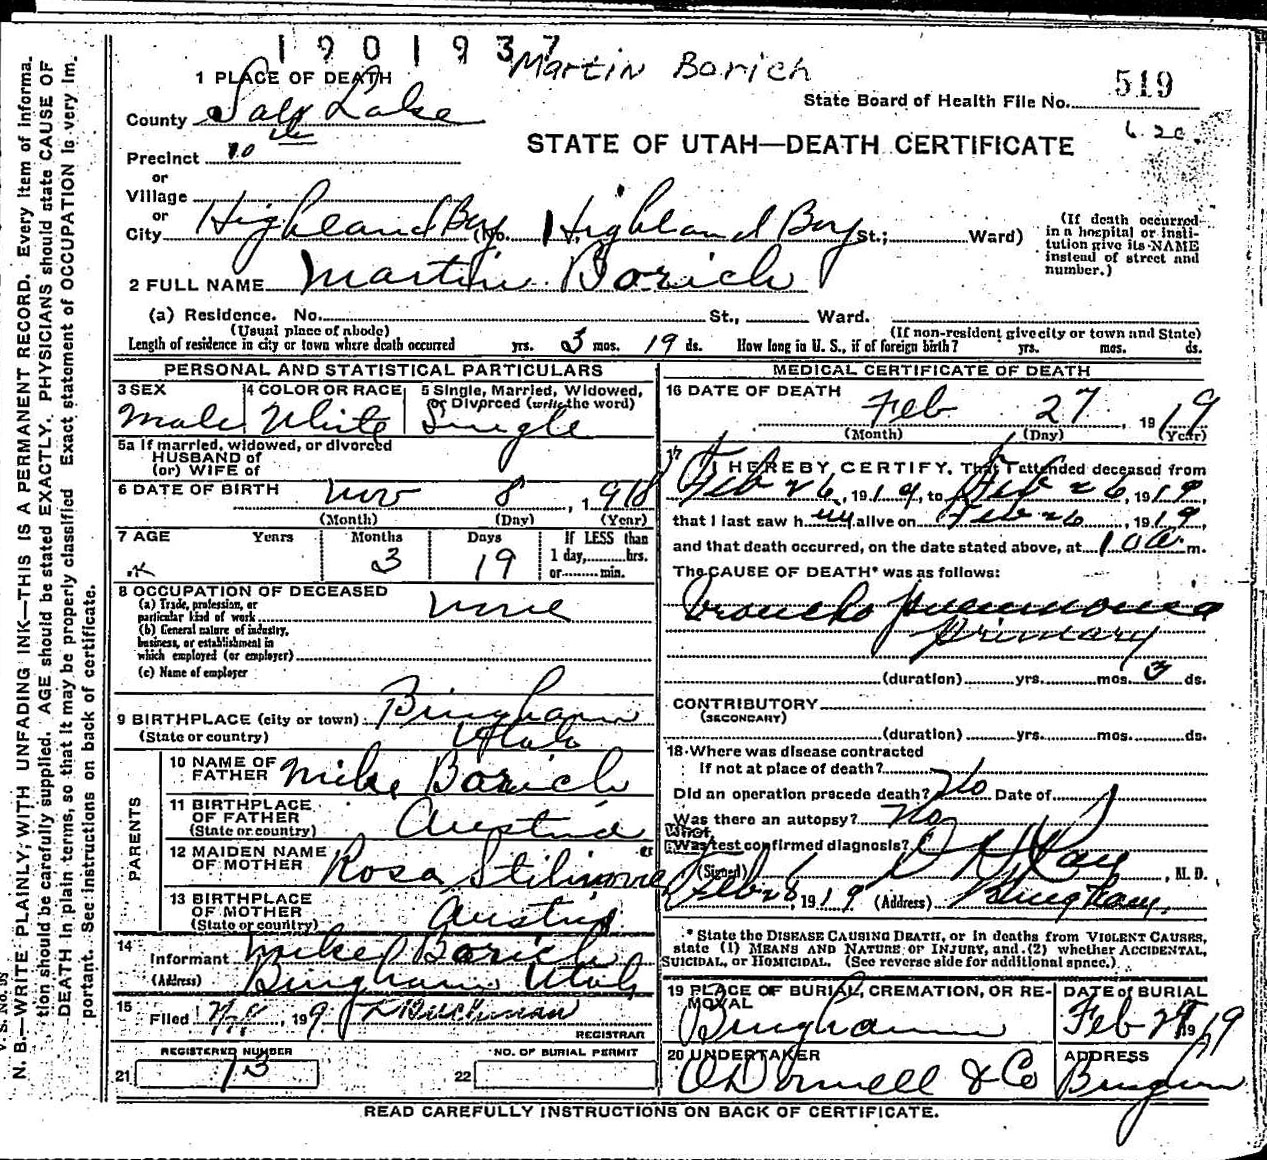 1901937
Martin Borich
1 PLACE OF DEATH
519
State Board of Health File No.
County Salt Lake
6.20
STATE OF UTAH—DEATH CERTIFICATE
Precinct 10th
or
Village
or
City Highland Boy (No. Highland Boy St.; Ward)
(If death occurred in a hospital or institution give its NAME instead of street and number.)
2 FULL NAME Martin Borich
(a) Residence. No. St., Ward.
(Usual place of abode) (If non-resident give city or town and State)
Length of residence in city or town where death occurred yrs. 3 mos. 19 ds. How long in U. S., if of foreign birth? yrs. mos. ds.
PERSONAL AND STATISTICAL PARTICULARS
3 SEX Male
4 COLOR OR RACE White
5 Single, Married, Widowed, or Divorced (write the word) Single
5a If married, widowed, or divorced
HUSBAND of
(or) WIFE of
6 DATE OF BIRTH Nov 8, 1918
(Month) (Day) (Year)
7 AGE Years Months 3 Days 19
If LESS than
1 day, hrs.
or min.
8 OCCUPATION OF DECEASED none
(a) Trade, profession, or
particular kind of work
(b) General nature of industry,
business, or establishment in
which employed (or employer)
(c) Name of employer
9 BIRTHPLACE (city or town) Bingham
(State or country) Utah
PARENTS
10 NAME OF FATHER Mike Borich
11 BIRTHPLACE OF FATHER (State or country) Austria
12 MAIDEN NAME OF MOTHER Rosa
13 BIRTHPLACE OF MOTHER (State or country) Austria
14
Informant Mike Borich
(Address) Bingham Utah
15
Filed , 1919
REGISTRAR
REGISTERED NUMBER
21 13
NO. OF BURIAL PERMIT
22
MEDICAL CERTIFICATE OF DEATH
16 DATE OF DEATH
Feb 27, 1919
(Month) (Day) (Year)
17 I HEREBY CERTIFY, That I attended deceased from
Feb 26, 1919, to Feb 26, 1919,
that I last saw him alive on Feb 26, 1919,
and that death occurred, on the date stated above, at m.
The CAUSE OF DEATH* was as follows:
Broncho pneumonia
Primary
(duration) yrs. mos. 3 ds.
CONTRIBUTORY
(SECONDARY)
(duration) yrs. mos. ds.
18 Where was disease contracted
If not at place of death?
Did an operation precede death? No Date of
Was there an autopsy? No
What test confirmed diagnosis?
(Signed) , M. D.
Feb 28, 1919 (Address) Bingham
* State the DISEASE CAUSING DEATH, or in deaths from VIOLENT CAUSES,
state (1) MEANS AND NATURE OF INJURY, and (2) whether ACCIDENTAL,
SUICIDAL, or HOMICIDAL. (See reverse side for additional space.)
19 PLACE OF BURIAL, CREMATION, OR REMOVAL Bingham
DATE of BURIAL Feb 1919
20 UNDERTAKER O'Donnell & Co
ADDRESS Bingham
READ CAREFULLY INSTRUCTIONS ON BACK OF CERTIFICATE.
N. B.—WRITE PLAINLY, WITH UNFADING INK—THIS IS A PERMANENT RECORD. Every item of information should be carefully supplied. AGE should be stated EXACTLY. PHYSICIANS should state CAUSE OF DEATH in plain terms, so that it may be properly classified. Exact statement of OCCUPATION is very important. See instructions on back of certificate.